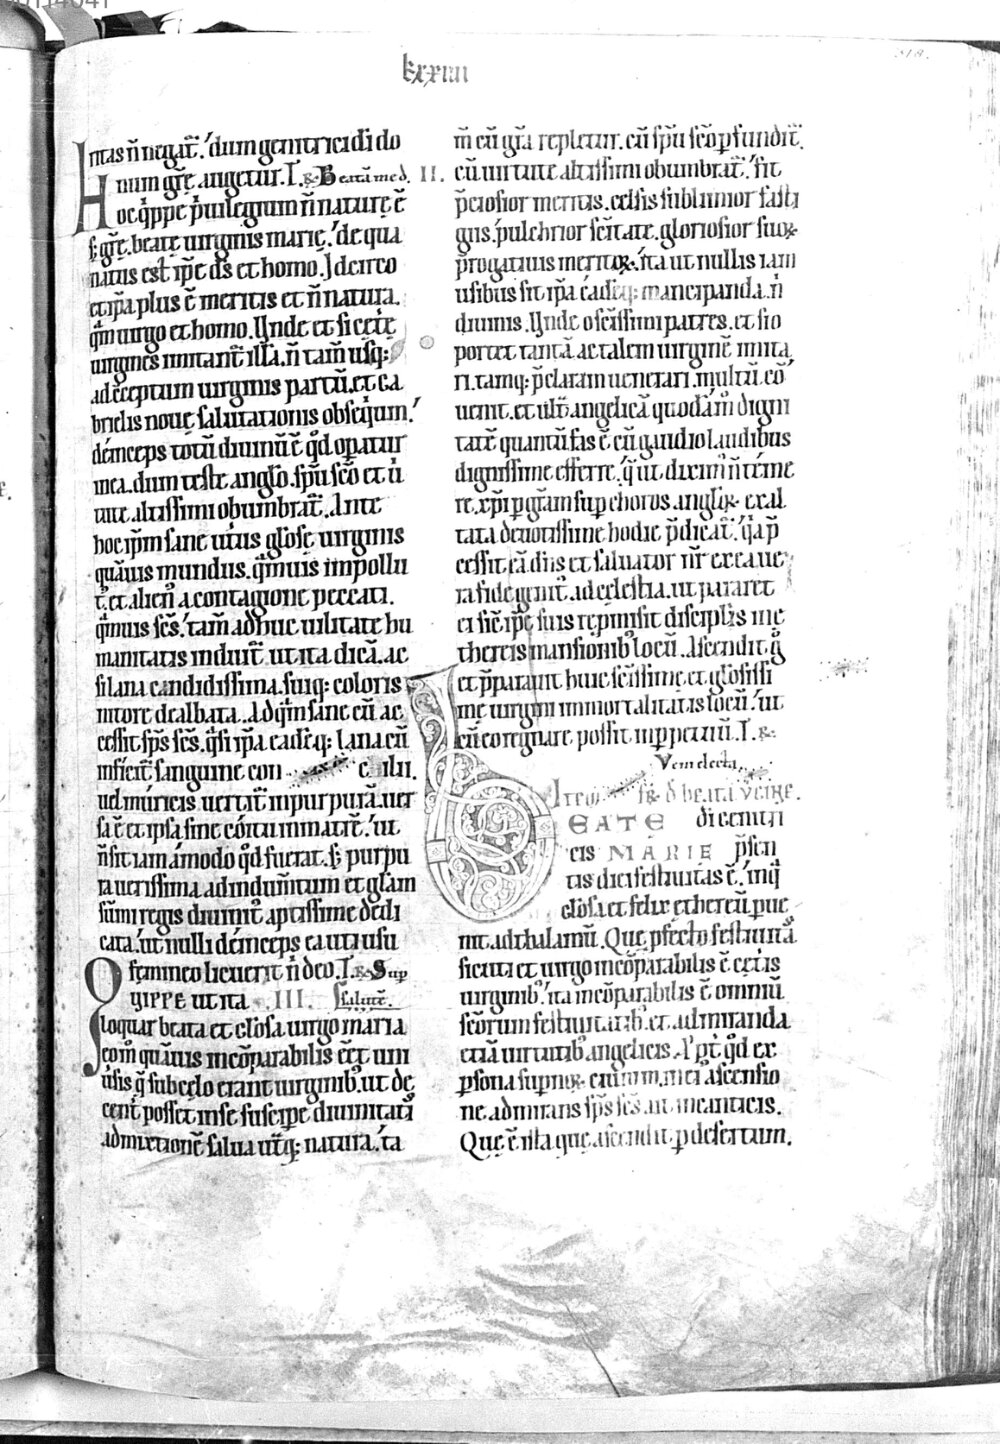 lxxiiii
ritas n̄ negat̄. dum genitrici dī do
num grē. augetur. I. R. Beatā me d. II.
Hoc q̇ppe p̄uilegium n̄ naturę ē
s; grē. beatę uirginis marię. de qua
natus est ip̄e ds̄ et homo. Idcirco
et ip̄a plus ē meritis et n̄ natura.
qm̄ uirgo et homo. Unde et si cetę
uirgines imitant̄ illā. n̄ tam̄ usq;
ad exceptum uirginis partū. et ga
brielis nouę salutationis obseq̇um.
deinceps totū diuinū ē qd̄ operatur
in ea. dum teste anglo. spū scō et ui
tute altissimi obumbrat̄. Ante
hoc ip̄m sane uirtus glōsę uirginis
quāuis mundus. qm̄uis impollu
t᷒. et alien᷒ a contagione peccati.
qm̄uis scs̄. tam̄ adhuc uilitate hu
manitatis induit᷒ ut ita dicā. ac
si lana candidissima. suiq; coloris
nitore dealbata. Ad qm̄ sane cū ac
cessit sp̄s scs̄. q̇si ip̄a eadēq; lana cū
inficit̄ sanguine con c. ilii.
uel muricis uertit̄ in purpurā. uer
sa ē et ipsa sine coitu in matrē. ut
n̄ sit iam amodo qd̄ fuerat. s; purpu
ra uerissima. ad indum̄tum et glām
sūmi regis diuinit᷒ aptissime dedi
cata. ut nulli deinceps ea uti usu
femineo licuerit n̄ deo. I. R. Sup
QVIPPE ut ita III. salutē.
loquar beata et glōsa uirgo maria
eom̄ quāuis incōparabilis eēt uni
uersis q̄ sub cęlo erant uirginib᷒. ut de
cent᷒ posset in se suscipe diuinitatis
admixtionē salua utq; natura. ta
m̄ cū grā repletur. cū spū scō pfundit̄.
cū uirtute altissimi obumbrat̄. fit
p̄ciosior meritis. celsis sublimior fasti
giis. pulchrior scītate. gloriosior suoꝝ
p̄rogatiuis meritoꝝ. ita ut nullis iam
usibus sit ip̄a eadēq; mancipanda. n̄
diuinis. Unde o scīssimi patres. et si o
portet tantā ac talem uirginē imita
ri. tamq; p̄claram uenerari. multū cō
uenit. et ult̄ angelicā quodam̄ digni
tatē quantū fas ē cū gaudio laudibus
dignissime efferre. q̄ ut diximus n̄ teme
re. xp̄i p grām sup choros angloꝝ exal
tata deuotissime hodie p̄dicat̄. q̇a p̄
cessit eā dn̄s et saluator nr̄ ex ea ue
ra fide genit᷒. ad celestia. ut pararet
ei sic ip̄e suis repmisit disciplis me
thereis mansionib᷒ locū. Ascendit g̊
et p̄parauit huic scīssime. et glōsissi
me uirgini immortalitatis locū. ut
cū eo regnare possit in ppetuū. I. R.
Veni electa.
Item R d beata virgine.
BEATE dī genitri
cis MARIE p̄sen
tis diei festiuitas ē. in q̇
glōsa et felix ethereū pue
nit ad thalamū. Que pfecto festiuitā
sicuti et uirgo incōparabilis ē cętis
uirginib᷒. ita incōparabilis ē omniū
scōrum festiuitatib᷒. et admiranda
etiā uirtutib᷒ angelicis. Ppt qd̄ ex
psona supnoꝝ ciuium in ei᷒ ascensio
ne. admirans sp̄s scs̄. ait in canticis.
Que ē ista que ascendit p desertum.